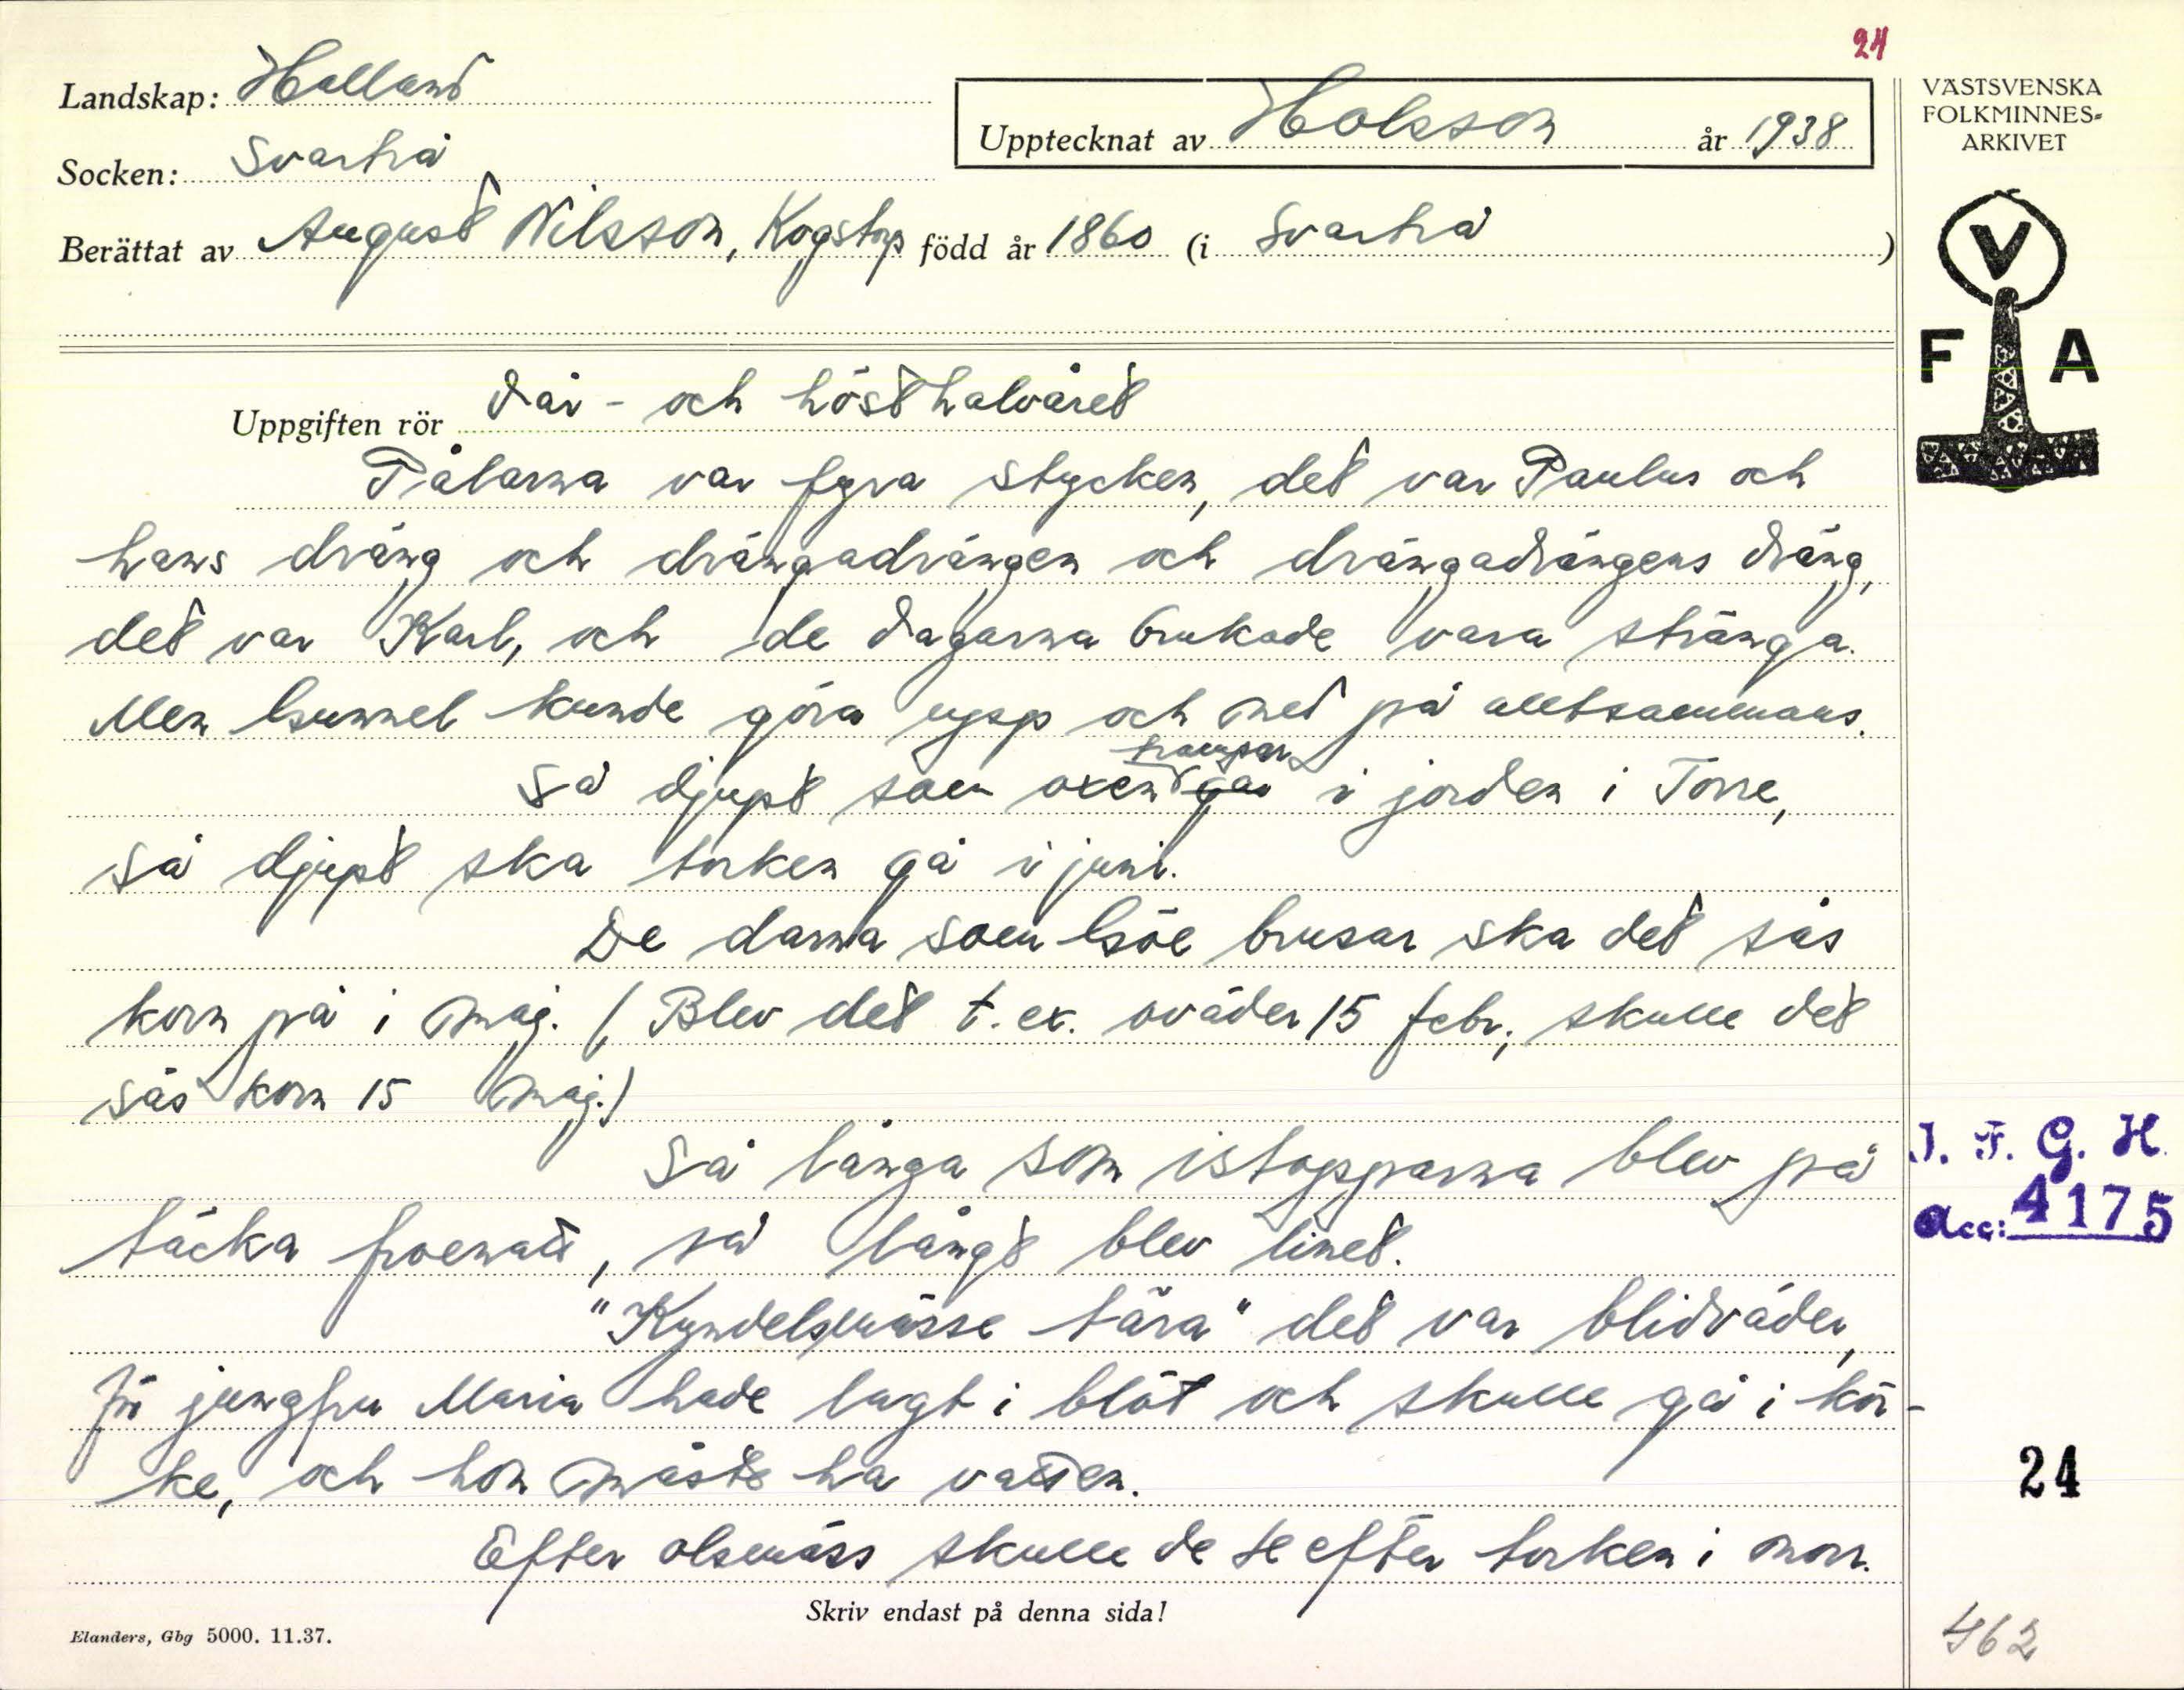 24
Landskap: Halland
Upptecknat av Holsson år 1938
VÄSTSVENSKA
FOLKMINNES-
ARKIVET
Socken: Svartrå
Berättat av August Nilsson, Kogstorp född år 1860 (i Svartrå )
V
F A
Uppgiften rör Vår- och hösthalvåret
Pålarna var fyra stycken, det var Paulus och
hans dräng och drängadrängen och drängadrängens dräng,
det var Karl, och de dagarna brukade vara stränga.
Men Gunnel kunde göra upp och ned på alltsammans.
trampar
Så djupt som oxen går i jorden i Torre,
så djupt ska torken gå i juni.
De darna som Göe brusar ska det sås
korn på i maj. (Blev det t. ex. oväder 15 febr., skulle det
sås korn 15 maj.)
Så långa som istapparna blev på
täcka froenatt, så långt blev linet.
"Kyndelsmässe tära" det var blidväder,
för jungfru Maria hade lagt i blöt och skulle gå i kör-
ke, och hon måste ha vatten.
Efter olsmäss skulle de se efter torken i morr.
I. F. G. H.
Acc: 4175
24
Skriv endast på denna sida!
Elanders, Gbg 5000. 11.37.
462